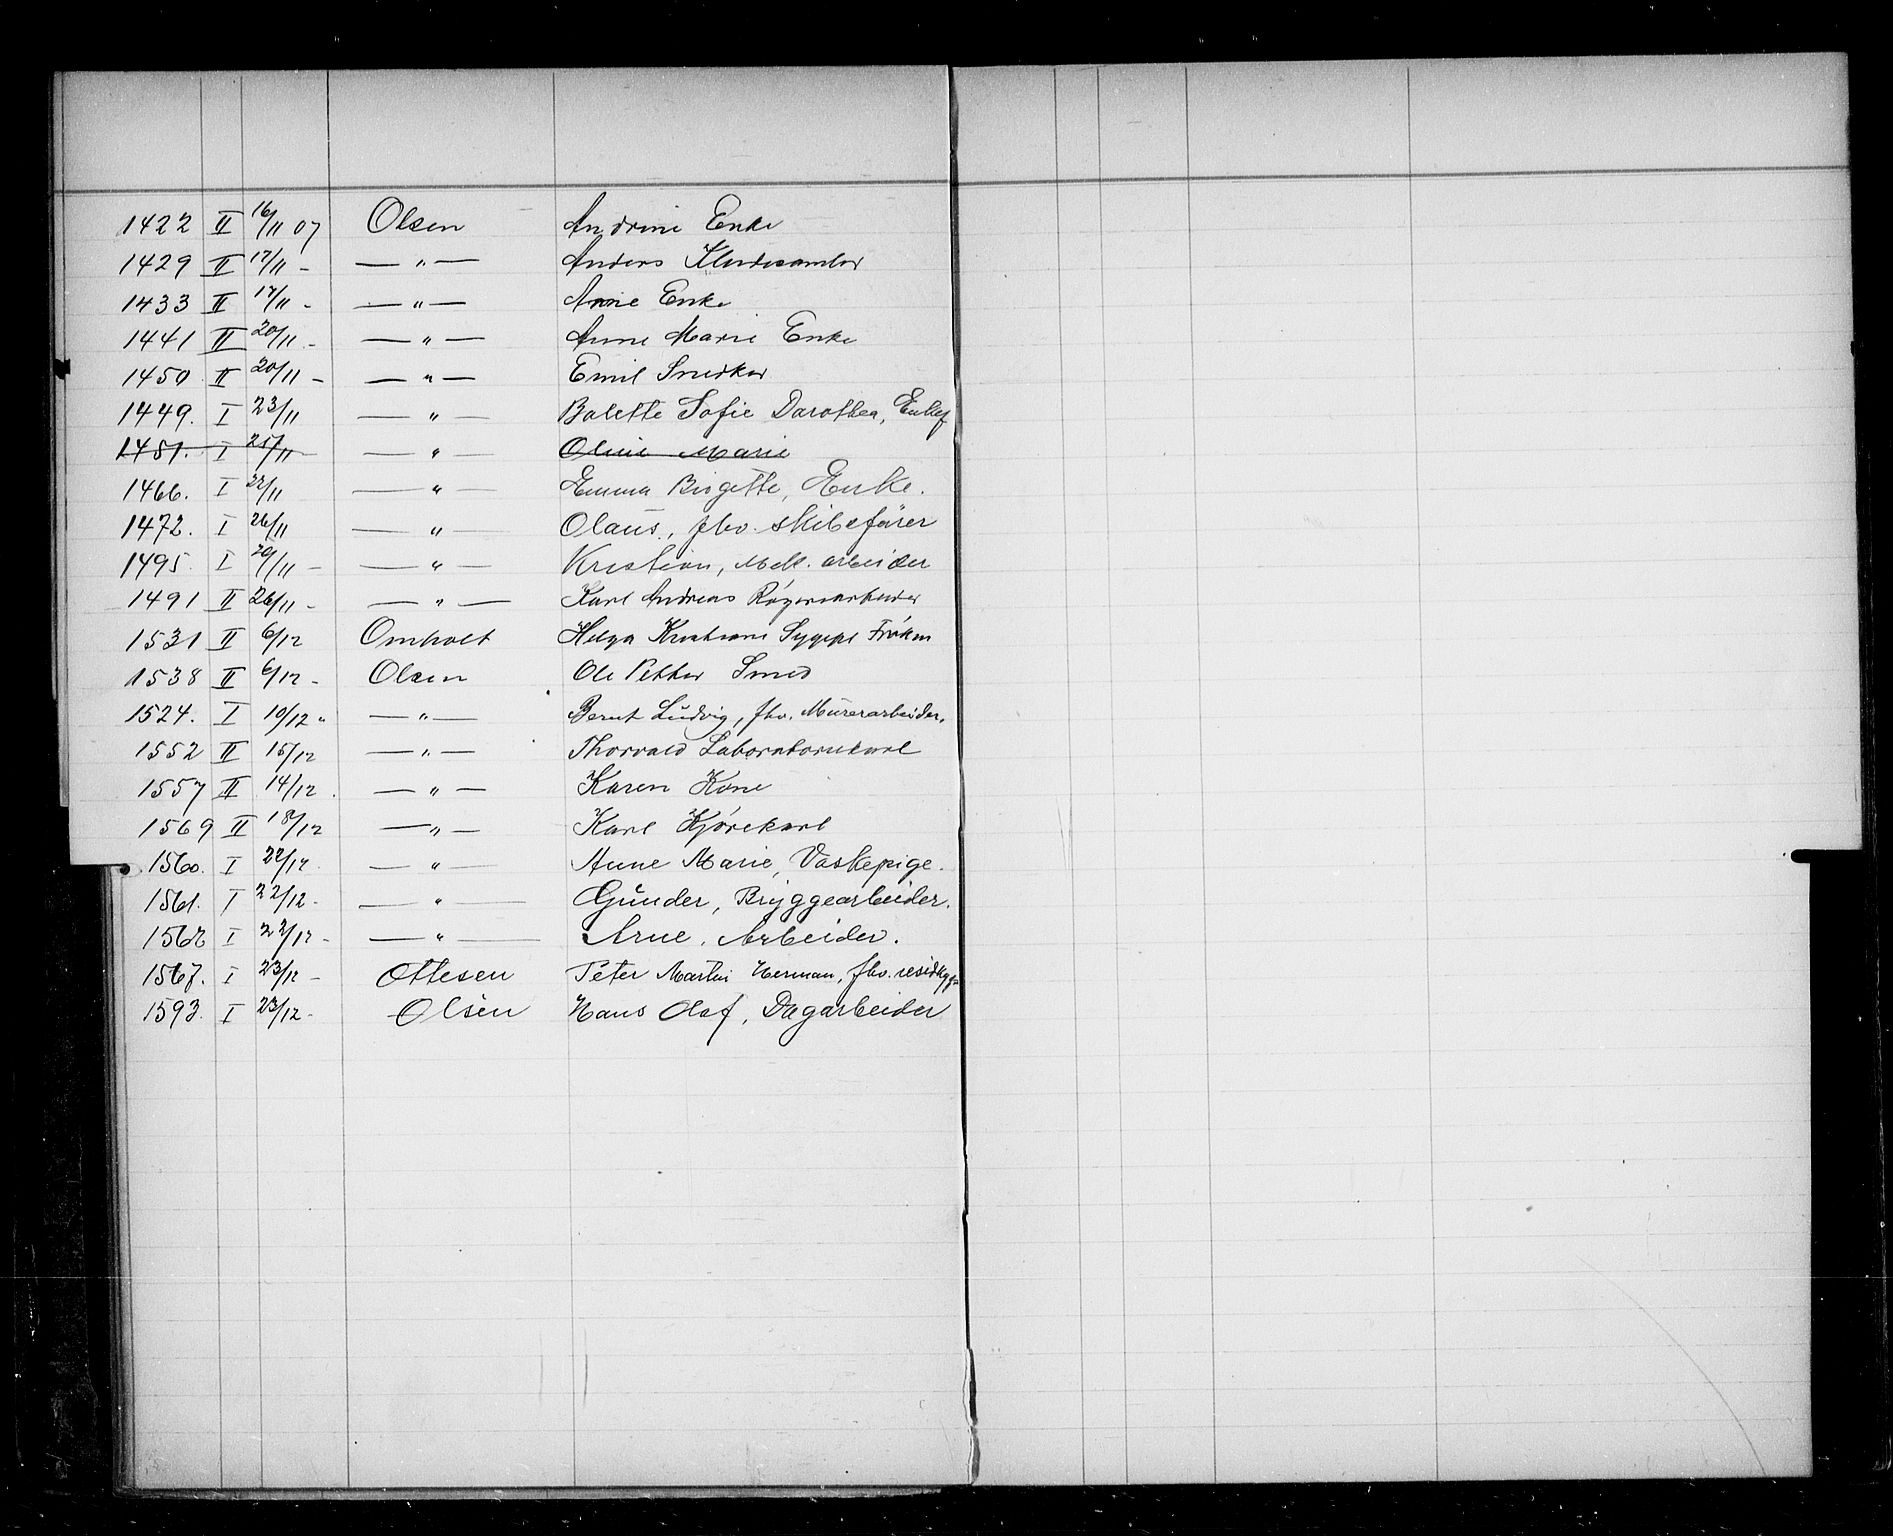 1422 II 16/11 07 Olsen Andrine Enke
1429 II 17/11 - — " — Anders Kludesamler
1433 II 17/11 - — " — Anne Enke
1441 II 20/11 - — " — Anne Marie Enke
1450 II 20/11 - — " — Emil Snedker
1449. I 23/11 — " — Bolette Sofie Dorothea, Enkef
1451. I 25/11 — " — Oline Marie
1466. I 22/11 — " — Emma Birgette, Enke.
1472. I 26/11 — " — Olaus, fhv. skibsfører
1495. I 29/11 - — " — Kristian, Mek. arbeider
1491 II 26/11 - — " — Karl Andreas
1531 II 6/12 Omholt Helga Kristiane Sygepl Frøken
1538 II 6/12 - Olsen Ole Petter Smed
1524. I 10/12 " — " — Bernt Ludvig, fhv. Murerarbeider.
1552 II 15/12 — " — Thorvald Laboratoriekarl
1557 II 14/12 . — " — Karen Kone
1569 II 18/12 — " — Karl Kjørekarl
1560. I 22/12. — " — Anne Marie, Vaskepige.
1561. I 22/12. — " — Gunder, Bryggearbeider.
1562 I 22/12 - — " — Arne, Arbeider.
1567. I 23/12 - Ottesen Peter Martin Herman, fhv.
1593. I 23/12 - Olsen Hans Olaf, Dagarbeider